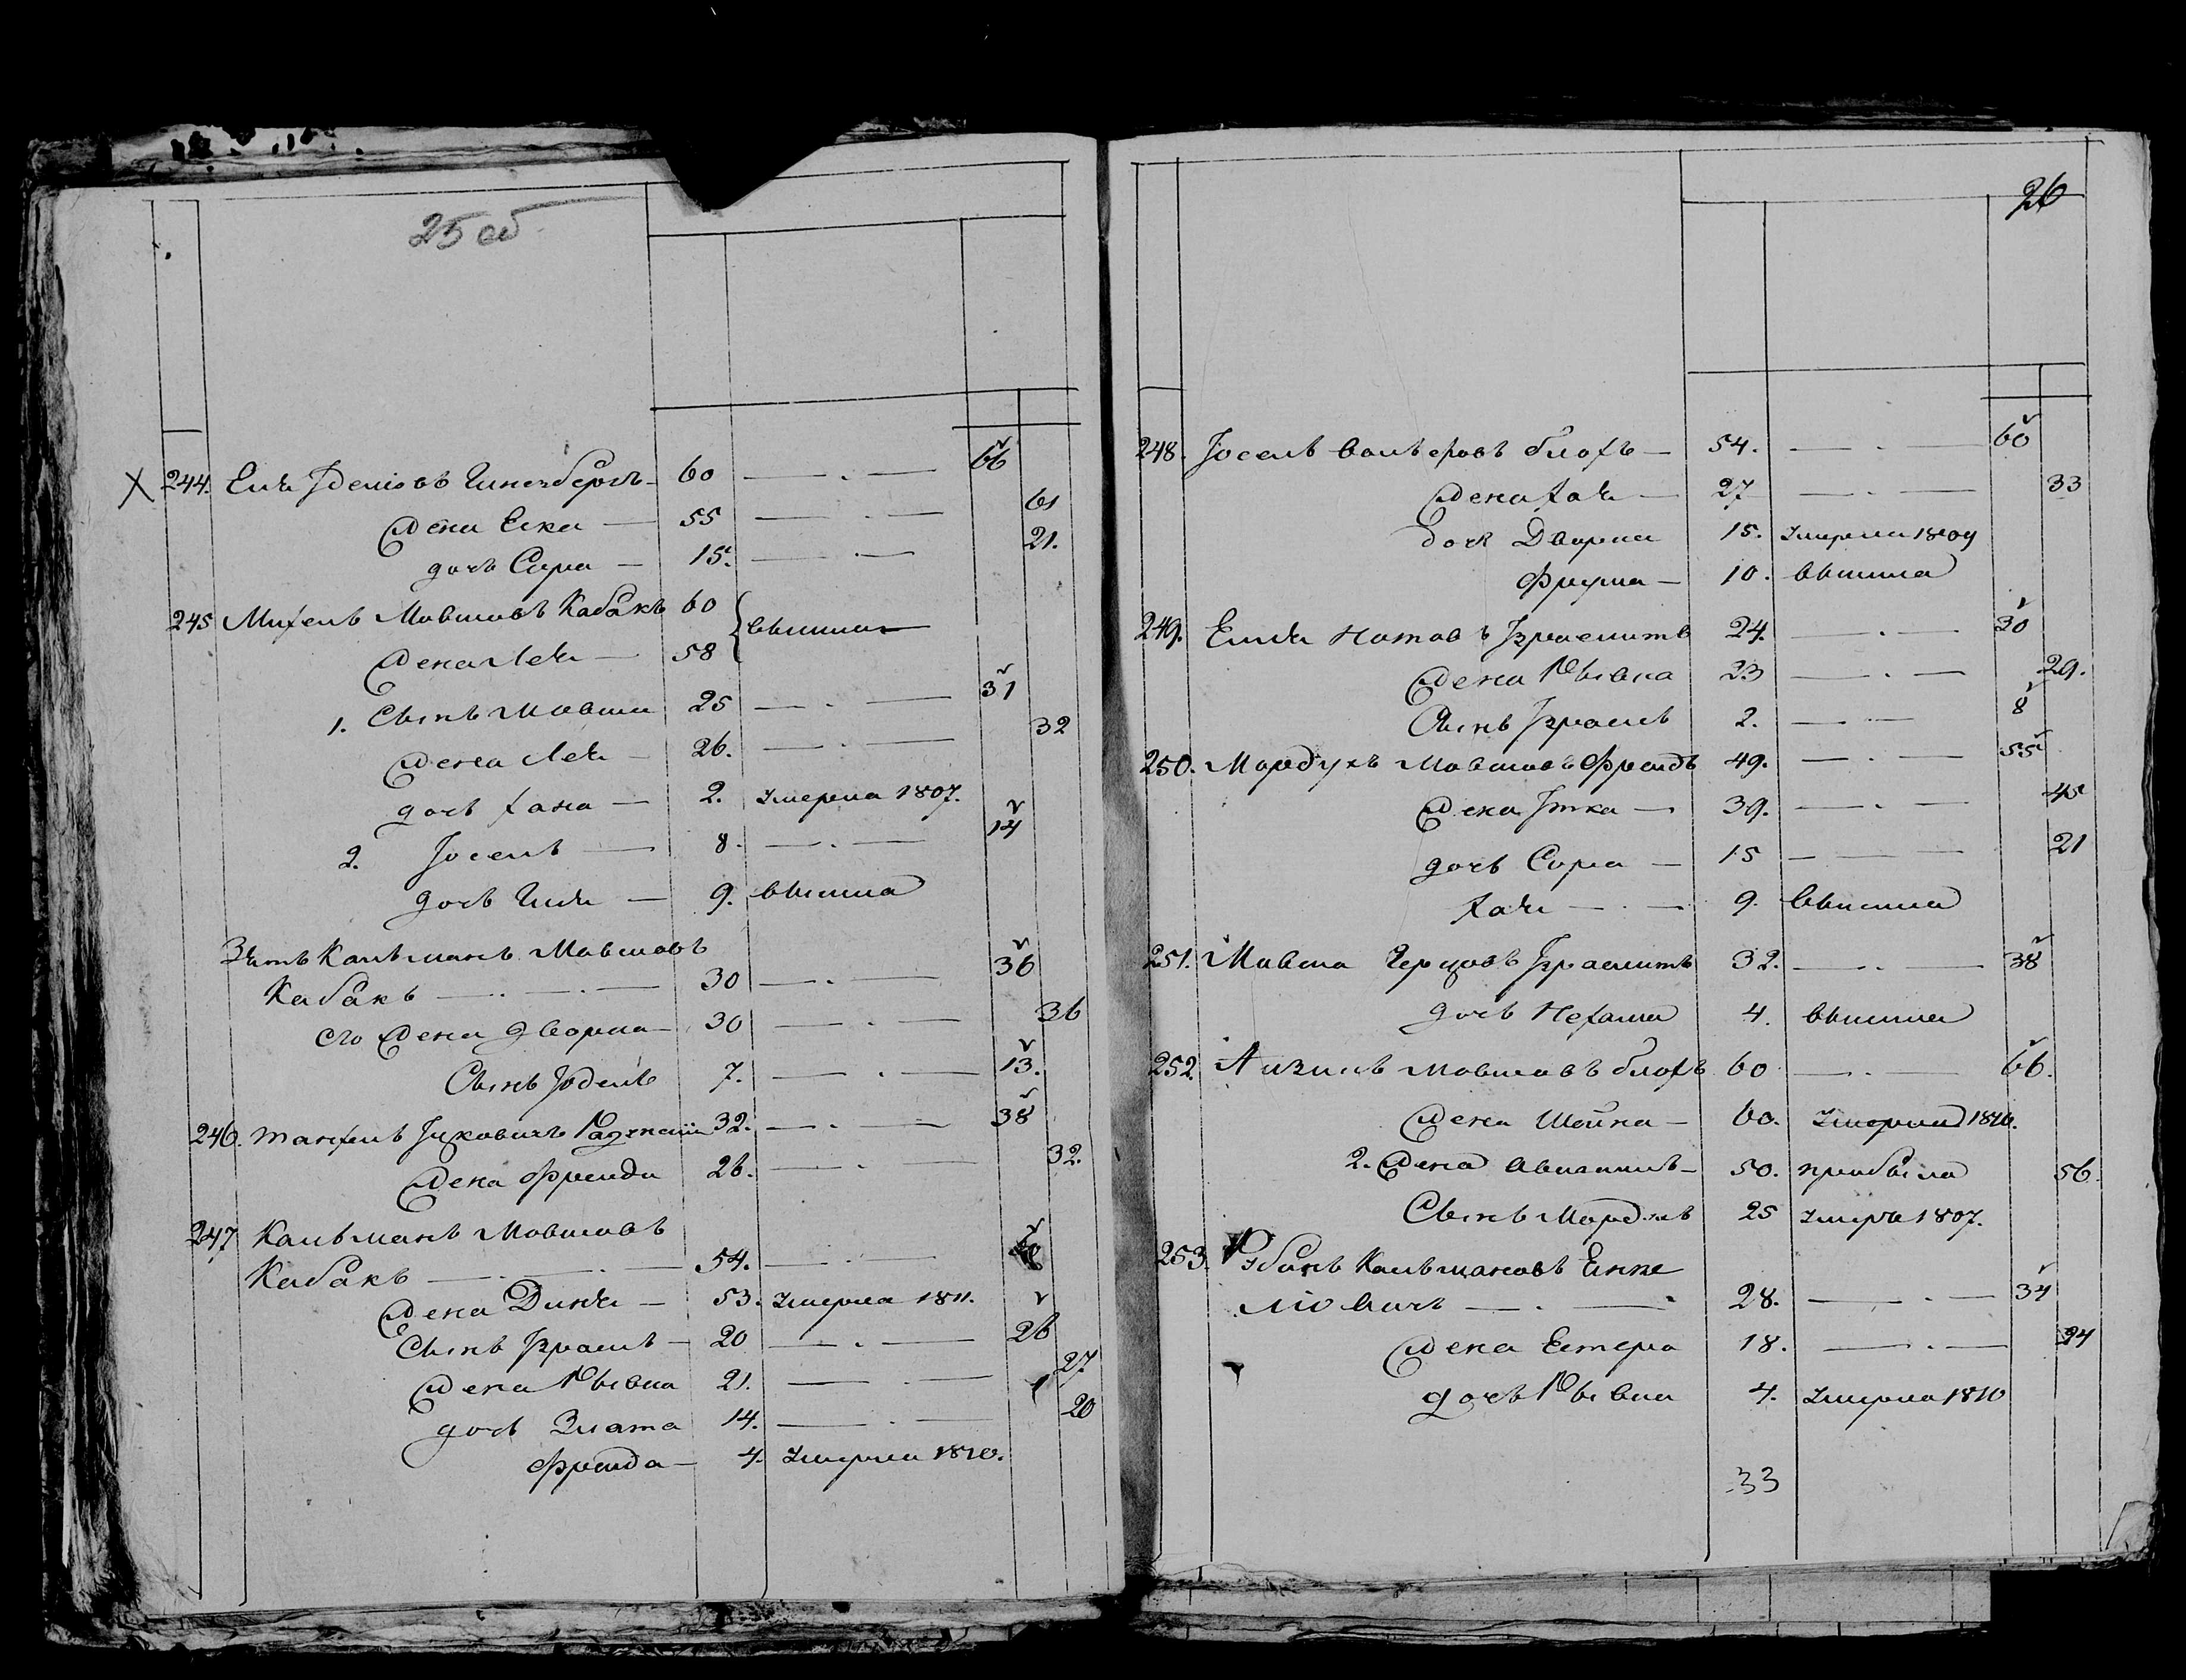 25 об
X 244. Елья Іделіовъ Гинсбергъ — 60 — . — 66
Жена Еска — 55 — . — 61
дочь Сора — 15. — . — 21.
245 Михель Мовшовъ Кабакъ 60 } вышли
Жена Лея — 58
1. Сынъ Мовша 25 — . — 31
Жена Лея — 26. — . — 32
дочь Хана — 2. Умерла 1807.
2. Іосель — 8. — . — 14
дочь Гита — 9. вышла
Зять Кальманъ Мовшовъ
Кабакъ — . — . — 30 — . — 36
его Жена Дворка — 30 — . — 36
Сынъ Іодель 7. — . — 13.
246. Іцковичъ 32. — . — 38
Жена Фрейда 26. — . — 32.
247 Кальманъ Мовшовъ
Кабакъ — . — 54. — . —
Жена Динья — 53. Умерла 1811.
Сынъ Израель — 20 — . — 26
Жена Рывка 21. — . — 27
дочь Злата 14. — . — 20
Фрейда — 4. Умерла 1810.
26
248. Іосель Вольеровъ Блохъ — 54. — . — 60
Жена Хая — 27 — . — 33
дочь Дворка 15. Умерла 1809
Фрума — 10. вышла
249. Елья Нотовъ Израелитъ 24. — . — 30
Жена Рывка 23 — . — 29.
Сынъ Израель 2. — . — 8
250. Мордухъ Мовшовъ Фрейдъ 49. — . — 55
Жена Итка — 39. — . — 45
дочь Сора — 15 — — — 21
Хая — . — 9. вышла
251. Мовша Герцовъ Израелитъ 32. — . — 38
дочь Нехама 4. вышла
252. Айзикъ Мовшовъ Блохъ 60 — . — 66.
Жена Шейна — 60. Умерла 1810.
2. Жена — 50. прибыла 56.
Сынъ Мордхель 25 Умеръ 1807.
253. Рубинъ Кальмановъ Епке
лювичъ — . — 28. — . — 34
Жена Естера 18. — . — 24
дочь Рывка 4. Умерла 1810
33